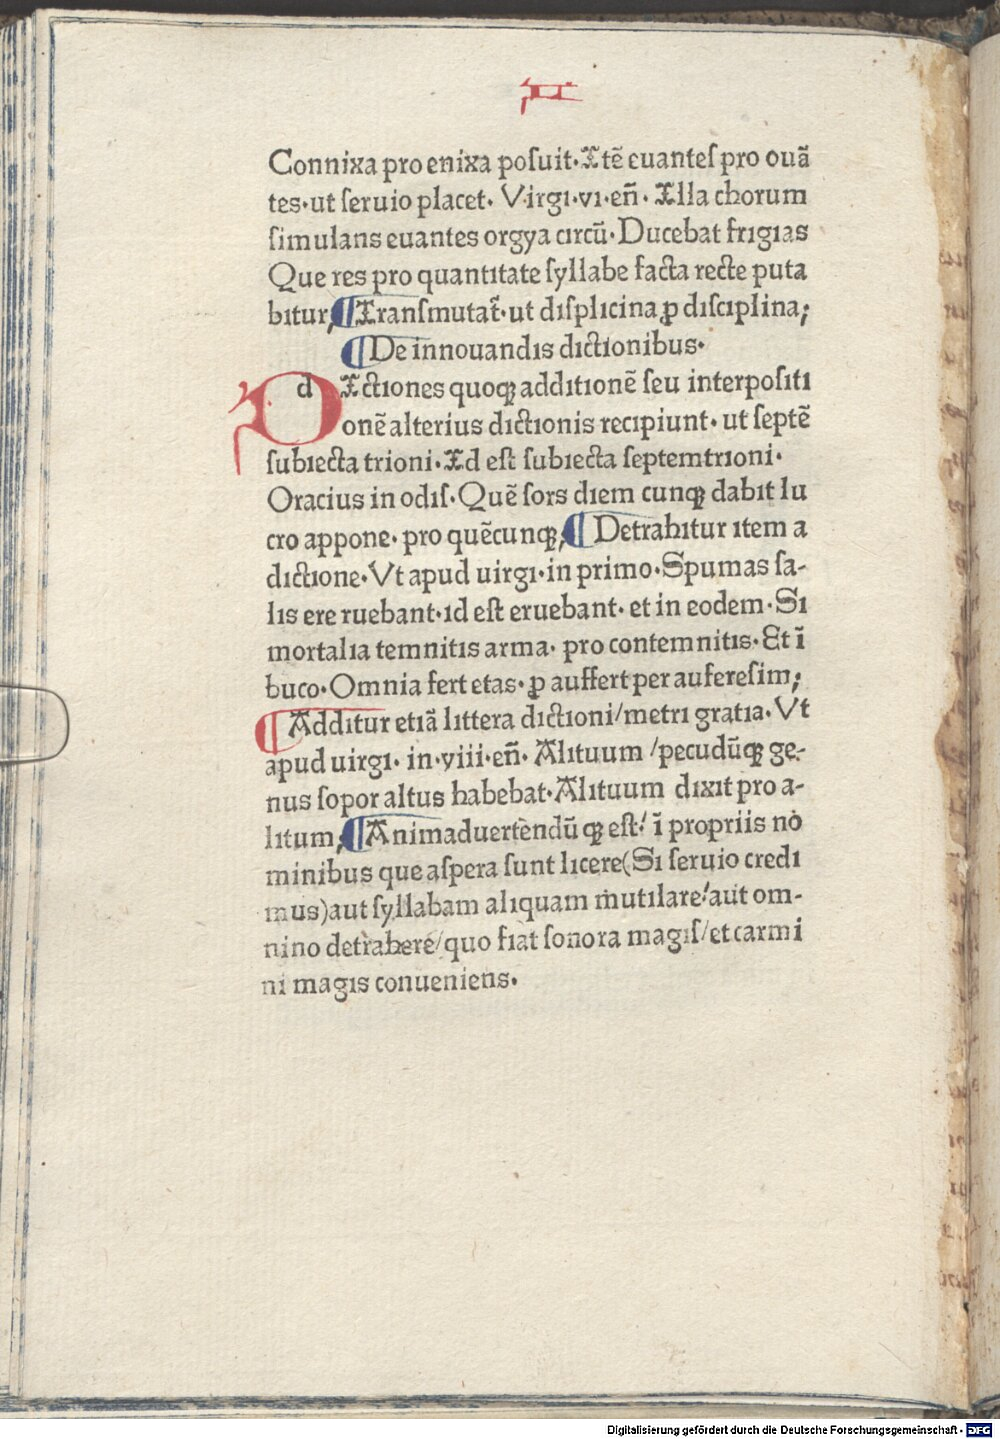 II
Connixa pro enixa poſuit· Itē euanteſ pro ouā
tes· ut ſeruio placet· Virgi·vi·en̄· Illa chorum
ſimulans euantes orgya circū· Ducebat frigias
Que res pro quantitate ſyllabe facta recte puta
bitur; ¶ Tranſmutat᷑· ut diſplicina ꝓ diſciplina;
¶ De innouandis dictionibus·
d Ictiones quoqꝫ additionē ſeu interpoſiti
onē alterius dictionis recipiunt· ut ſeptē
ſubiecta trioni· Id eſt ſubiecta ſeptemtrioni·
Oracius in odiſ· Quē ſors diem cunqꝫ dabit lu
cro appone· pro quēcunqꝫ; ¶ Detrahitur item a
dictione· Vt apud uirgi· in primo· Spumas ſa-
lis ere ruebant· id eſt eruebant· et in eodem· Si
mortalia temnitis arma· pro contemnitis· Et ī
buco· Omnia fert etas· ꝓ auffert per aufereſim;
¶ Additur etiā littera dictioni/metri gratia· Vt
apud uirgi· in·viii·en̄· Alituum /pecudūqꝫ ge-
nus ſopor altus habebat· Alituum dixit pro a-
litum; ¶ Animaduertendū qꝫ eſt! ī propriis no
minibus que aſpera ſunt licere(Si ſeruio credi
mus)aut ſyllabam aliquam mutilare! aut om-
nino detrahere/quo fiat ſonora magiſ/et carmi
ni magis conueniens·
Digitalisierung gefördert durch die Deutsche Forschungsgemeinschaft - DFG